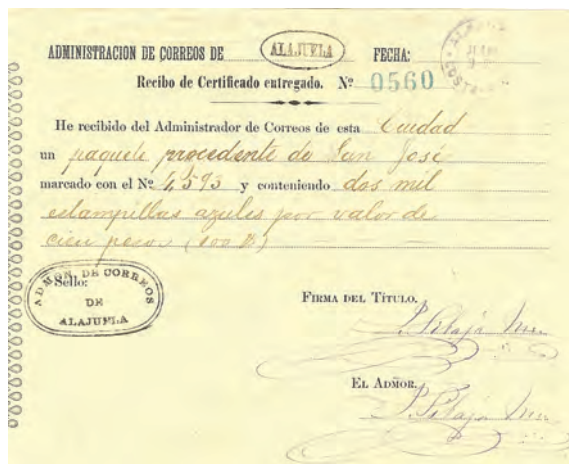 ADMINISTRACION DE CORREOS DE ALAJUELA FECHA:
Recibo de Certificado entregado. Nº 0560
He recibido del Administrador de Correos de esta Ciudad
un paquete procedente de San José
marcado con el Nº 4,593 y conteniendo dos mil
estampillas azules por valor de
cien pesos (100 $)
Sello:
ADMON. DE CORREOS
DE
ALAJUELA
FIRMA DEL TITULO.
EL ADMOR.